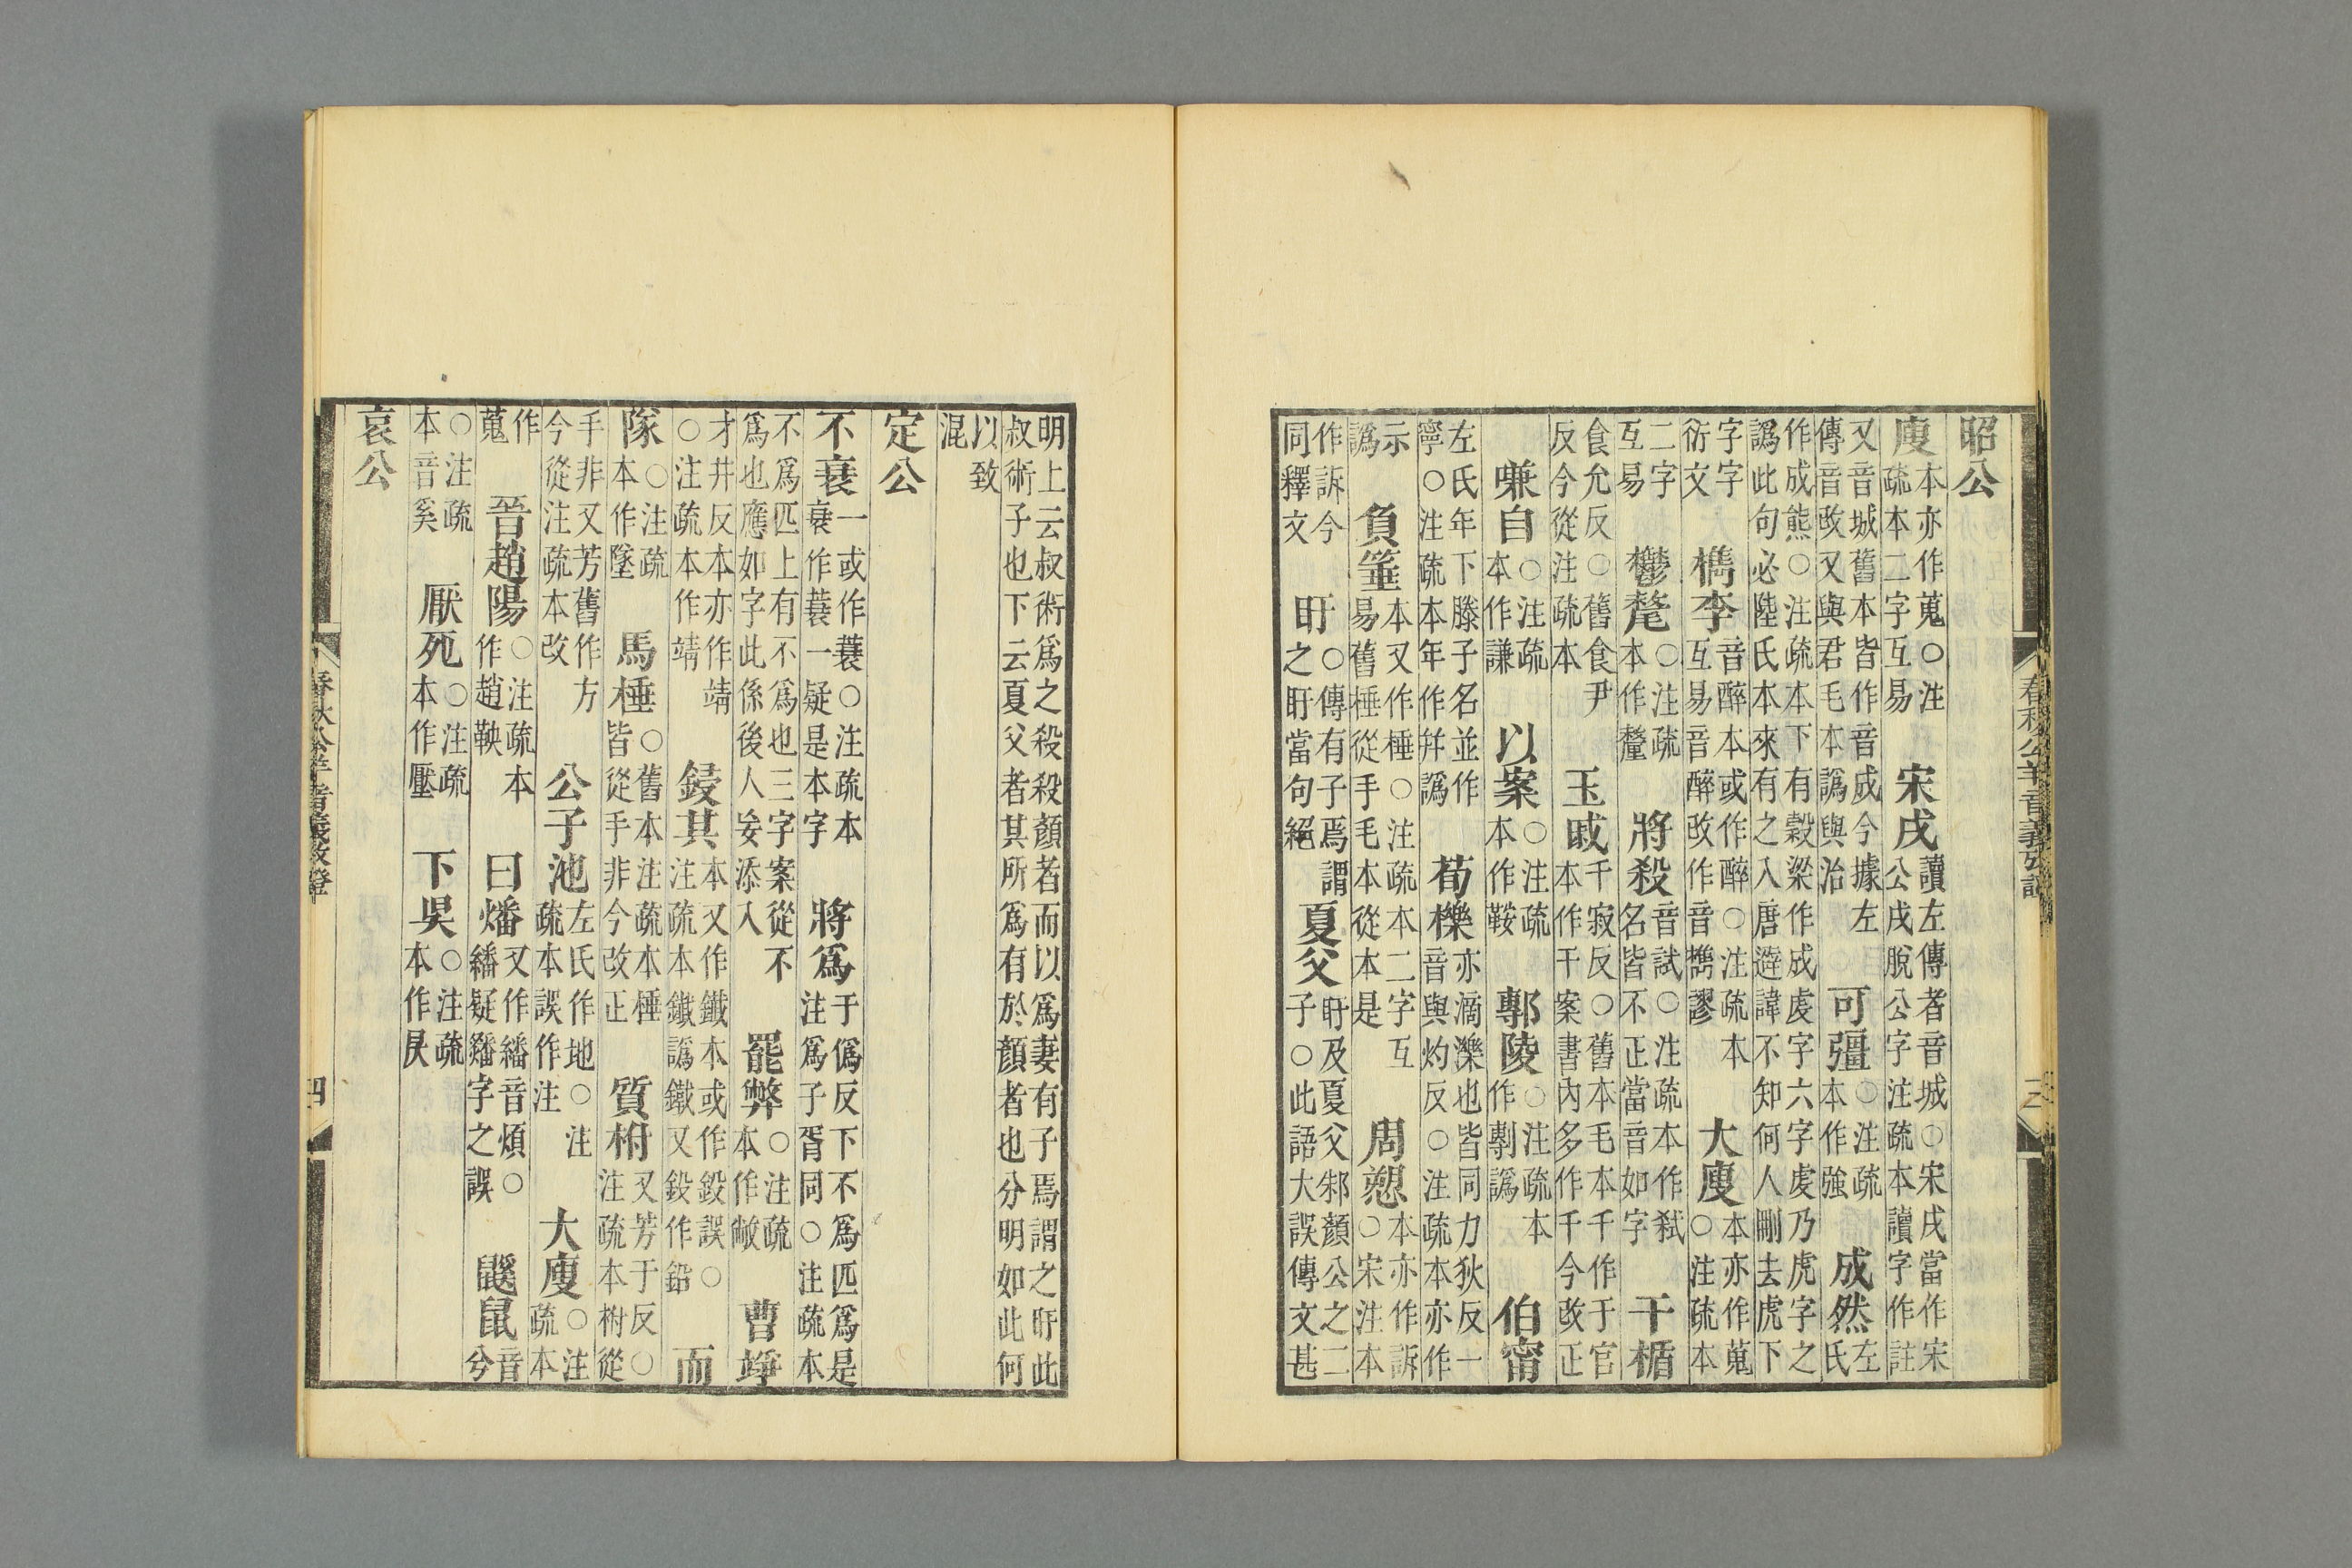 昭公
廋本亦作蒐○注疏本二字互易 宋戌讀左傳者音城○宋戌當作宋公戌脫公字注疏本讀字作註
又音城舊本皆作音成今據左傳音改又與君毛本譌與治 可彊○注疏本作強 成然左氏
作成熊○注疏本下有穀梁作成虔字六字虔乃虎字之譌此句必陸氏本來有之入唐避諱不知何人刪去虎下
字字衍文 檇李音醉本或作醉○注疏本互易音醉改作音檇謬 大廋本亦作蒐○注疏本
二字互易 鬱氂○注疏本作釐 將殺音試○注疏本作弑名皆不正當音如字 干楯
食允反○舊食尹反今從注疏本 玉戚千寂反○舊本毛本千作于官本作干案書內多作千今改正
嗛自○注疏本作謙 以案○注疏本作鞍 鄟陵○注疏本作剸譌 伯甯
左氏年下滕子名並作寧○注疏本年作幷譌 荀櫟亦滴濼也皆同力狄反一音與灼反○注疏本亦作
示譌 負箠本又作棰○注疏本二字互易舊棰從手毛本從本是 周愬本亦作訴○宋注本
作訴今同釋文 盱○傳有子焉謂之盱當句絕 夏父盱及夏父邾顏公之二子○此語大誤傳文甚
春秋公羊音義攷證 三
明上云叔術爲之殺殺顏者而以爲妻有子焉謂之盱此叔術子也下云夏父者其所爲有於顏者也分明如此何
以致混
定公
不衰一或作蓑○注疏本衰作蓑一疑是本字 將爲于僞反下不爲匹爲是注爲子胥同○注疏本
不爲匹上有不爲也三字案從不爲也應如字此係後人妄添入 罷弊○注疏本作敝 曹竫
才井反本亦作靖○注疏本作靖 鋟其本又作鐵本或作鋟誤○注疏本鐵譌鐵又鋟作鉛 而
隊○注疏本作墜 馬棰○舊本注疏本棰皆從手非今改正 質柎又芳于反○注疏本柎從
手非又芳舊作方今從注疏本改 公子池左氏作地○注疏本誤作注 大廋○注疏本
作蒐 晉趙陽○注疏本作趙鞅 曰燔又作繙音煩○繙疑膰字之誤 鼷鼠音兮
○注疏本音奚 厭死○注疏本作壓 下昃○注疏本作㫐
哀公
春秋公羊音義攷證 四